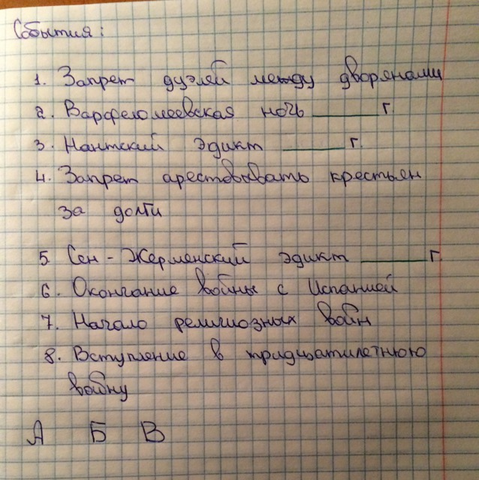 События:
1. Запрет дуэлей между дворянами
2. Варфеломеевская ночь ______ г.
3. Нантский эдикт ______ г.
4. Запрет арестовывать крестьян
за долги
5. Сен-Жерменский эдикт ______ г.
6. Окончание войны с Испанией
7. Начало религиозных войн
8. Вступление в тридцатилетнюю
войну
А Б В